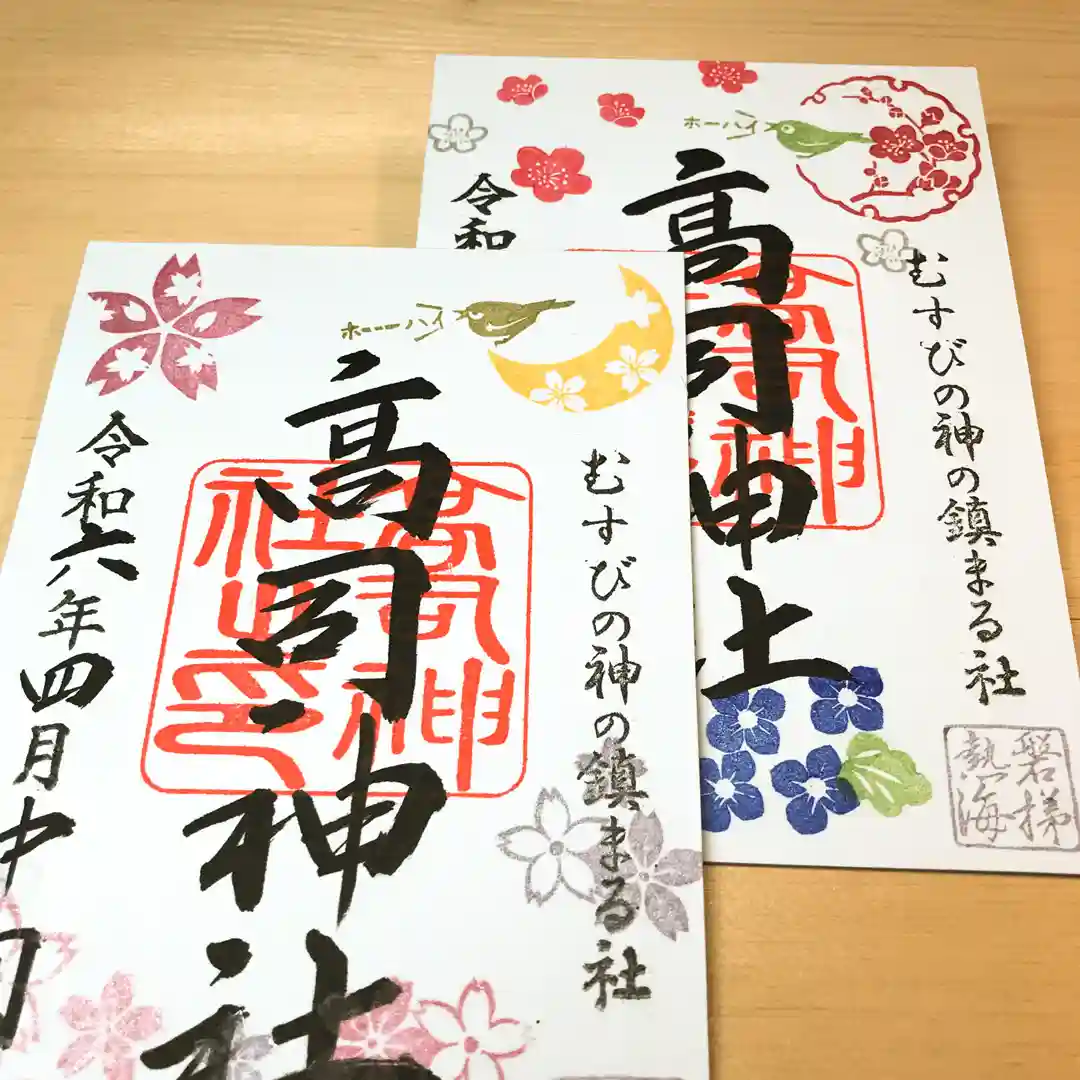 ホーーハイ
むすびの神の鎮まる社
高司神社
高司神社之印
令和六年四月中旬
ホーーハイ
むすびの神の鎮まる社
高司神社
令和
磐梯
熱海